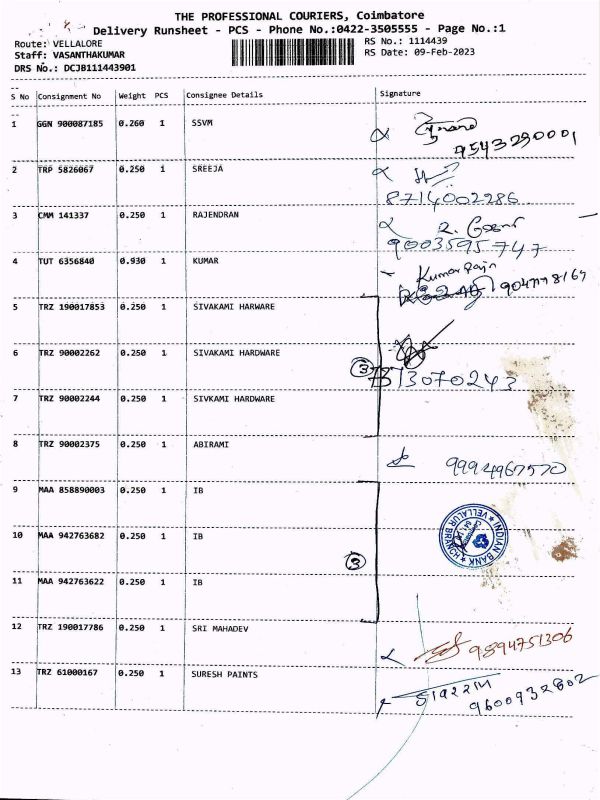 THE PROFESSIONAL COURIERS, Coimbatore
Delivery Runsheet - PCS - Phone No.:0422-3505555 - Page No.:1
Route: VELLALORE
RS No.: 1114439
Staff: VASANTHAKUMAR
RS Date: 09-Feb-2023
DRS No.: DCJB111443901
S No Consignment No Weight PCS Consignee Details Signature
1 GGN 900087185 0.260 1 SSVM
9543290001
2 TRP 5826067 0.250 1 SREEJA
8714002286
3 CMM 141337 0.250 1 RAJENDRAN
9003595747
4 TUT 6356840 0.930 1 KUMAR
Kumar Raja
5 TRZ 190017853 0.250 1 SIVAKAMI HARWARE
6 TRZ 90002262 0.250 1 SIVAKAMI HARDWARE
3
7 TRZ 90002244 0.250 1 SIVKAMI HARDWARE
8 TRZ 90002375 0.250 1 ABIRAMI
9994967570
9 MAA 858890003 0.250 1 IB
10 MAA 942763682 0.250 1 IB
INDIAN BANK
VELLALUR BRANCH
3
11 MAA 942763622 0.250 1 IB
12 TRZ 190017786 0.250 1 SRI MAHADEV
9894751306
13 TRZ 61000167 0.250 1 SURESH PAINTS
9600932802